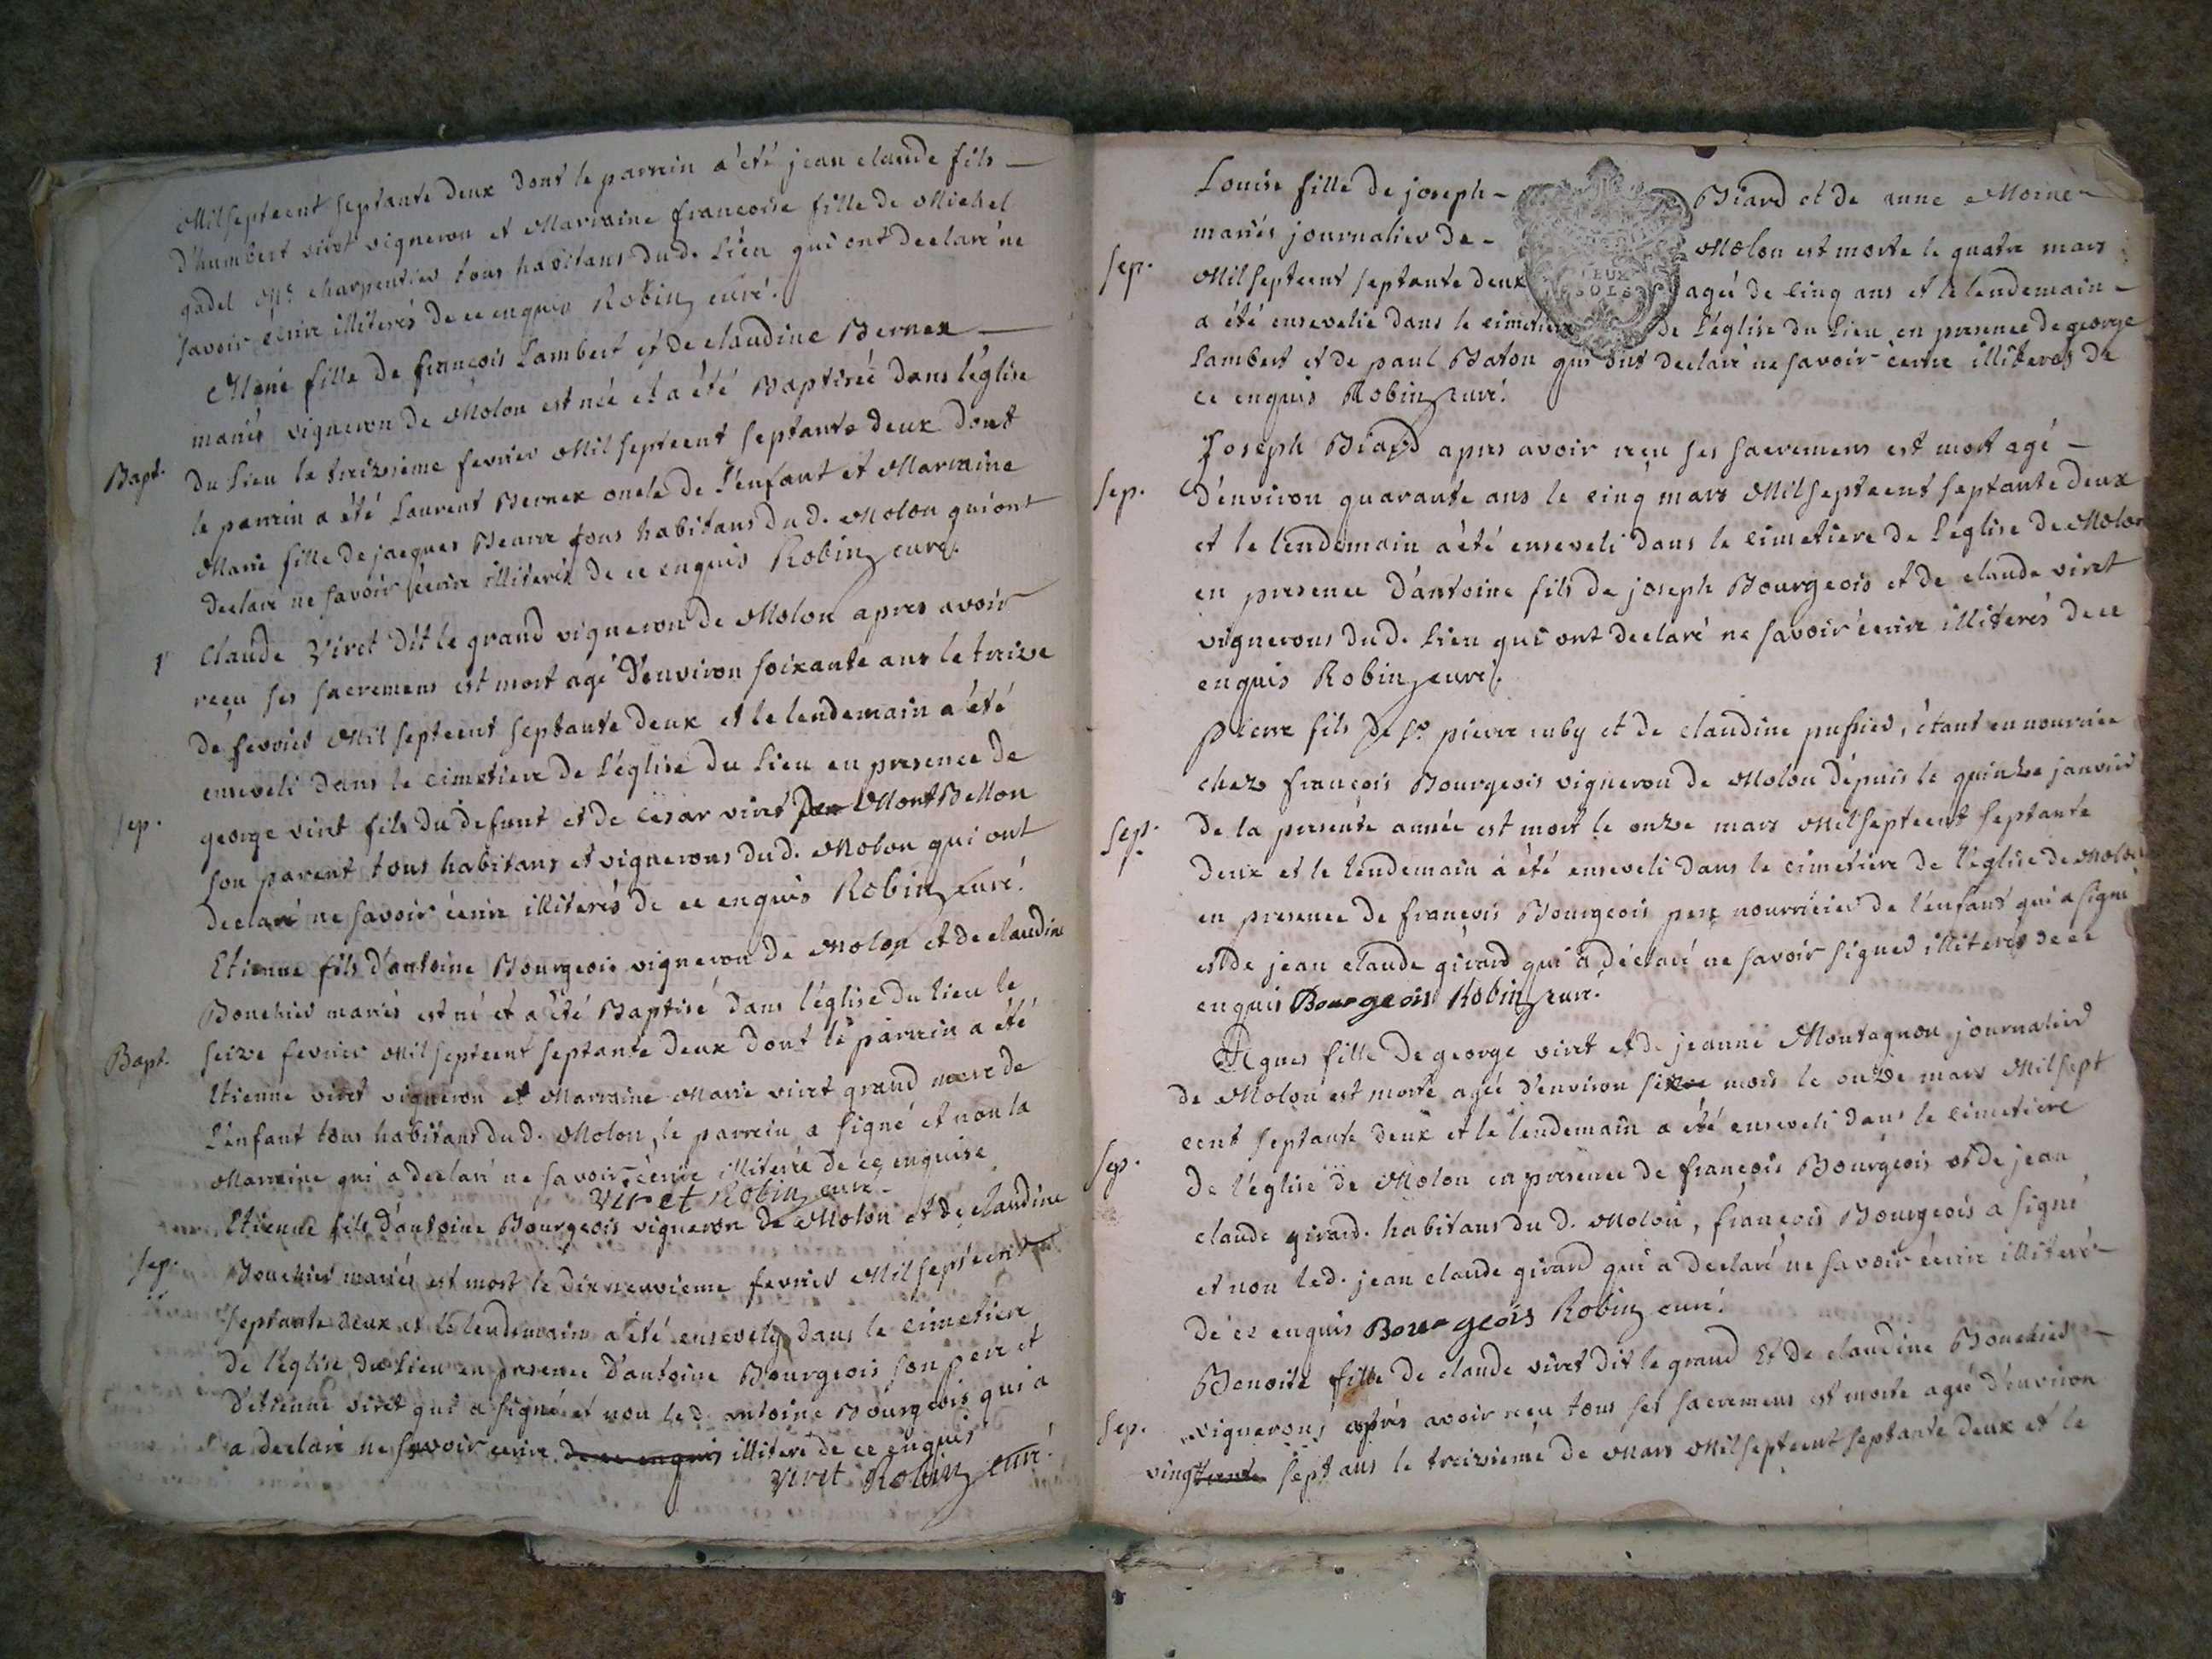 Milseptcent septante deux dont le parrein a été jean claude fils
d'humbert viret vigneron et Marraine francoise fille de Michel
gadel Me. charpentier tous habitans dud. Lieu qui ont declaré ne
savoir écrire illiterés de ce enquis Robin curé.
fille de françois Lambert et de claudine Bernex
mariés vigneron de Molon est née et a été Baptisée dans l'église
Bapt.
du Lieu le treizieme fevrier Mil septcent septante deux dont
le parrein a été Laurent Bernex oncle de l'enfant et Marraine
Marie fille de jacques tous habitans dud. Molon qui ont
declaré ne savoir écrire illiterés de ce enquis Robin curé.
Claude Viret dit le grand vigneron de Molon apres avoir
reçu ses sacremens est mort agé d'environ soixante ans le treize
de fevrier Mil septcent septante deux et le lendemain a été
enseveli dans le cimetiere de l'église du Lieu en presence de
sep.
george viret fils du defunt et de cesar viret MontBellon
son parent tous habitans et vignerons dud. Molon qui ont
declaré ne savoir écrire illiterés de ce enquis Robin curé.
Etienne fils d'antoine Bourgeois vigneron de Molon et de claudine
Bouchier mariés est né et a été Baptisé dans l'église du lieu le
Bapt.
seize fevrier Mil septcent septante deux dont le parrein a été
Etienne viret vigneron et Marraine Marie viret grand mere de
l'enfant tous habitans dud. Molon, le parrein a signé et non la
Marraine qui a declaré ne savoir écrire illiterée de ce enquise
Viret Robin curé.
Etienne fils d'antoine Bourgeois vigneron de Molon et de claudine
sep.
Bouchier mariés est mort le dix neuvieme fevrier Mil septcent
septante deux et le lendemain a été ensevely dans le cimetiere
de l'église du Lieu en presence d'antoine Bourgeois son pere et
d'etienne viret qui a signé et non led. antoine Bourgeois qui a
a declaré ne savoir ecrire de ce enquis illiteré de ce enquis
Viret Robin curé.
Louise fille de joseph Biard et de anne
mariés journalier de Molon est morte le quatre mars
sep.
Milseptcent septante deux agée de cinq ans et le lendemain
DEUX SOLS
a été ensevelie dans le cimetiere de l'église du Lieu en presence de george
Lambert et de paul Baton qui ont declaré ne savoir écrire illiterés de
ce enquis Robin curé.
Joseph Biard apres avoir reçu ses sacremens est mort agé
sep.
d'environ quarante ans le cinq mars Milseptcent septante deux
et le lendemain a été enseveli dans le cimetiere de l'église de Molon
en presence d'antoine fils de joseph Bourgeois et de claude viret
vignerons dud. Lieu qui ont declaré ne savoir écrire illiterés de ce
enquis Robin curé.
Pierre fils de Sr. pierre cuby et de claudine étant en nourrice
chez françois Bourgeois vigneron de Molon dépuis le quinze janvier
sep.
de la presente année est mort le onze mars Milseptcent septante
deux et le lendemain a été enseveli dans le cimetiere de l'église de Molon
en presence de françois Bourgeois pere nourricier de l'enfant qui a signé
et de jean claude girard qui a déclaré ne savoir signer illiterés de ce
enquis Bourgeois Robin curé.
Agnes fille de george viret et de jeanne Montagnon journalier
de Molon est morte agée d'environ mois le onze mars Mil sept
cent septante deux et le lendemain a été enseveli dans le cimetiere
sep.
de l'église de Molon en presence de françois Bourgeois et de jean
claude girard. habitans du d. Molon, françois Bourgeois a signé
et non led. jean claude girard qui a declaré ne savoir écrire illiteré
de ce enquis Bourgeois Robin curé.
Benoite fille de claude viret dit le grand Et de claudine Bouchier
sep.
vignerons après avoir reçu tous ses sacremens est morte agée d'environ
vingt trente sept ans le treizieme de Mars Milseptcent septante deux et le